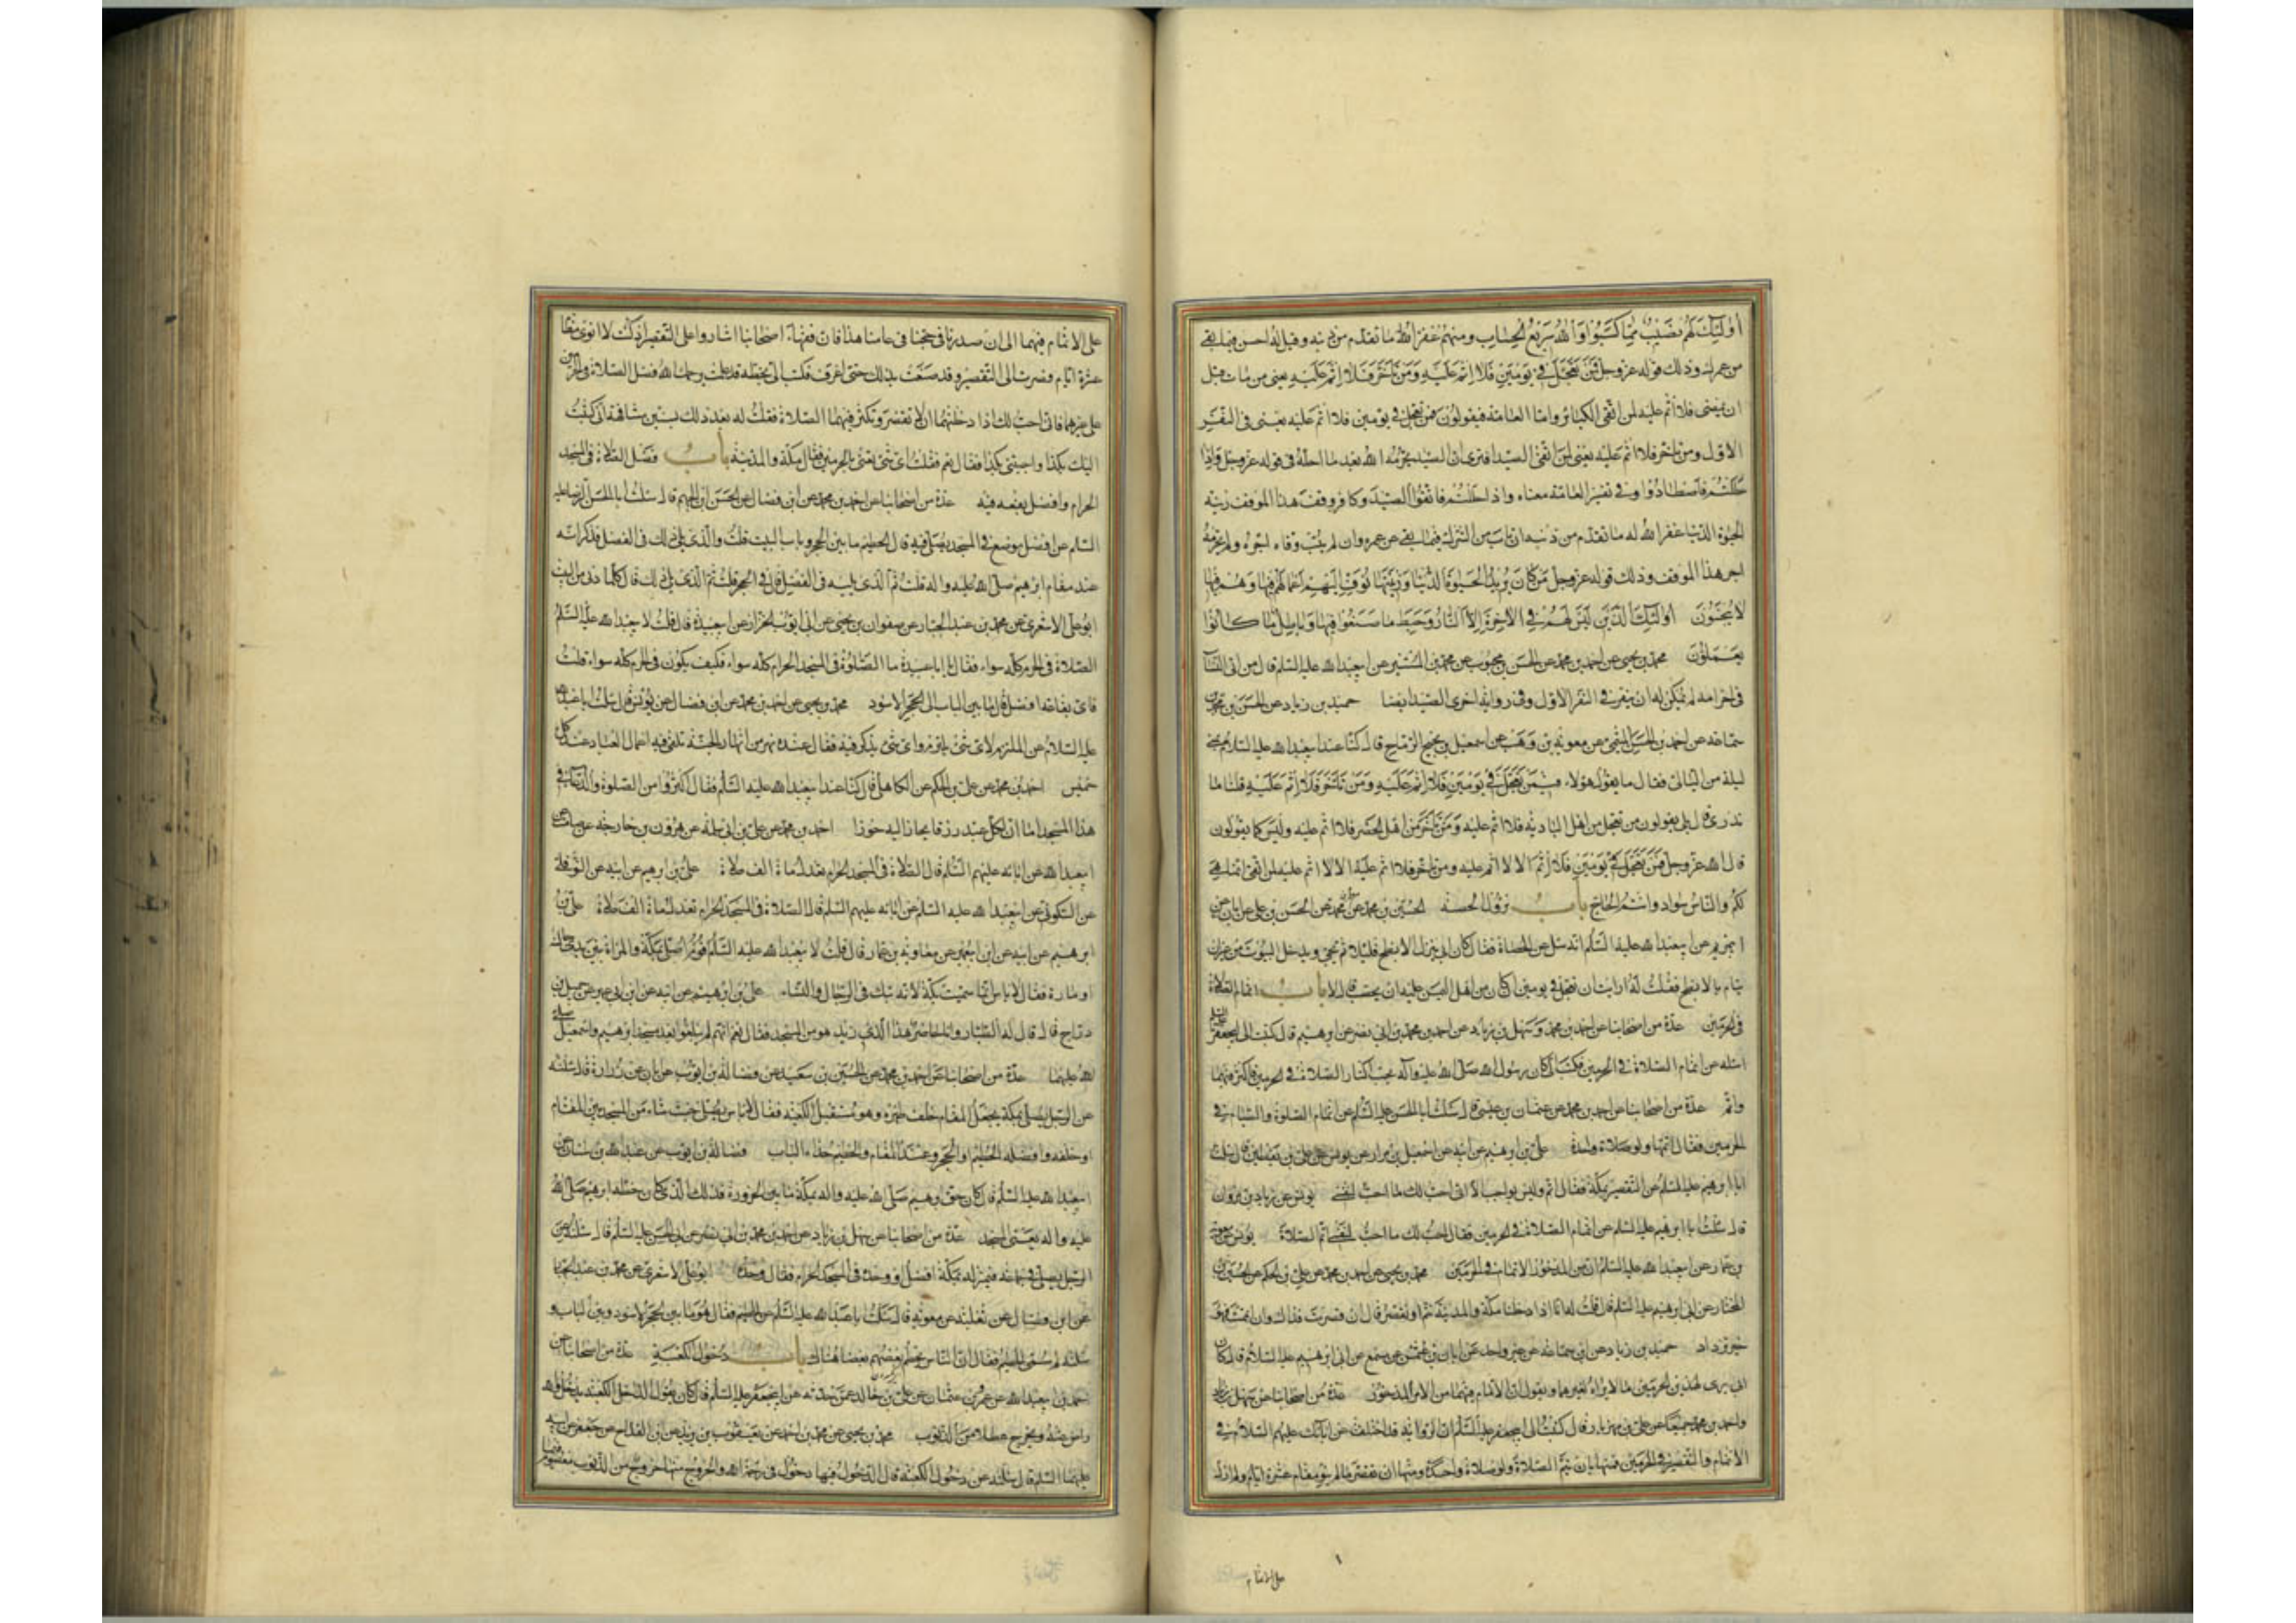 أُولَئِكَ لَهُمْ نَصِيبٌ مِمَّا كَسَبُوا وَاللهُ سَرِيعُ الْحِسَابِ ومنهم غفر الله ما تقدم من ذنبه وقيل له احسن فيما بقى
من عمرك وذلك قوله عز وجل فَمَنْ تَعَجَّلَ فِي يَوْمَيْنِ فَلَا اِثْمَ عَلَيْهِ وَمَنْ تَأَخَّرَ فَلَا اِثْمَ عَلَيْهِ يعنى من مات قبل
ان يمضى فلا اثم عليه لمن اتقى الكبائر واما العامة فيقولون فمن تعجل في يومين فلا اثم عليه يعنى في النفر
الاول ومن تاخر فلا اثم عليه يعنى لمن اتقى الصيد افترى ان الصيد يحرمه الله بعد ما احله في قوله عز وجل وَاِذَا
حَلَلْتُمْ فَاصْطَادُوا وفي تفسير العامة معناه واذا حللتم فاتقوا الصيد وكافر وقف هذا الموقف زينة
الحيوة الدنيا غفر الله له ما تقدم من ذنبه ان تاب من الشرك فيما بقى من عمره وان لم يتب وفاه اجره ولم يحرمه
اجر هذا الموقف وذلك قوله عز وجل مَنْ كَانَ يُرِيدُ الْحَيٰوةَ الدُّنْيَا وَزِينَتَهَا نُوَفِّ اِلَيْهِمْ اَعْمَالَهُمْ فِيهَا وَهُمْ فِيهَا
لَا يُبْخَسُونَ اُولَئِكَ الَّذِينَ لَيْسَ لَهُمْ فِي الْاٰخِرَةِ اِلَّا النَّارُ وَحَبِطَ مَا صَنَعُوا فِيهَا وَبَاطِلٌ مَا كَانُوا
يَعْمَلُونَ محمد بن يحيى عن احمد بن محمد عن الحسن بن محبوب عن محمد بن المستنير عن ابيعبد الله عليه السلم قال من اتى النساء
في احرامه لم يكن له ان ينفر في النفر الاول وفي رواية اخرى الصيد ايضا حميد بن زياد عن الحسن بن محمد بن
سماعة عن احمد بن الحسن الميثمي عن معوية بن وهب عن اسمعيل بن نجيح الرماح قال كنا عند ابيعبد الله عليه السلام بمنى
ليلة من الليالى فقال ما يقول هؤلاء فيمن تَعَجَّلَ فِي يَوْمَيْنِ فَلَا اِثْمَ عَلَيْهِ وَمَنْ تَأَخَّرَ فَلَا اِثْمَ عَلَيْهِ قلنا ما
ندرى قال بلى يقولون من تعجل من اهل البادية فلا اثم عليه وَمَنْ تَأَخَّرَ من اهل الحضر فلا اثم عليه وليس كما يقولون
قال الله عز وجل فَمَنْ تَعَجَّلَ فِي يَوْمَيْنِ فَلَا اِثْمَ الا لا اثم عليه ومن تاخر فلا اثم عليه الا لا اثم عليه لمن اتقى انما هى
لكم والناس سواد وانتم الحاج باب نزول الحصبة الحسين بن محمد عن معلى بن محمد عن الحسن بن على عن ابان عن
ابى مريم عن ابيعبد الله عليه السلم انه سئل عن الحصبة فقال كان ابى ينزل الابطح قليلا ثم يجئ ويدخل البيوت من غير ان
ينام بالابطح فقلت له ارايت ان تعجل في يومين ان كان من اهل اليمن عليه ان يحصب قال لا باب اتمام الصلاة
في الحرمين عدة من اصحابنا عن احمد بن محمد وسهل بن زياد عن احمد بن محمد بن ابى نصر عن ابرهيم قال كتبت الى ابيجعفر عليه السلم
اسئله عن اتمام الصلاة في الحرمين فكتب الى كان رسول الله صلى الله عليه وآله يحب اكثار الصلاة في الحرمين فاكثر فيهما
واتم عدة من اصحابنا عن احمد بن محمد عن عثمان بن عيسى قال سئلت ابا الحسن عليه السلم عن اتمام الصلوة والصيام في
الحرمين فقال اتمها ولو صلاة واحدة على بن ابرهيم عن ابيه عن اسمعيل بن مرار عن يونس عن على بن يقطين قال سئلت
ابا ابرهيم عليه السلم عن التقصير بمكة فقال اتم وليس بواجب الا انى احب لك ما احب لنفسى يونس عن زياد بن مروان
قال سئلت ابا ابرهيم عليه السلم عن اتمام الصلاة في الحرمين فقال احب لك ما احب لنفسى اتم الصلاة يونس عن معوية
بن عمار عن ابيعبد الله عليه السلم ان من المذخور الاتمام في الحرمين محمد بن يحيى عن احمد بن محمد عن على بن الحكم عن الحسين بن
المختار عن ابى ابرهيم عليه السلم قال قلت له انا اذا دخلنا مكة والمدينة نتم او نقصر قال ان قصرت فذاك وان اتممت فهو
خير تزداد حميد بن زياد عن ابن سماعة عن غير واحد عن ابان بن عثمن عن مسمع عن ابى ابرهيم عليه السلام قال كان
ابى يرى لهذين الحرمين ما لا يراه لغيرهما ويقول ان الاتمام فيهما من الامر المذخور عدة من اصحابنا عن سهل بن زياد
واحمد بن محمد جميعا عن على بن مهزيار قال كتبت الى ابيجعفر عليه السلم ان الرواية قد اختلفت عن آبائك عليهم السلام في
الاتمام والتقصير في الحرمين فمنها بان يتم الصلاة ولو صلاة واحدة ومنها ان يقصر مالم ينو مقام عشرة ايام ولم ازل
على الاتمام
على الاتمام فيهما الى ان صدرنا في حجنا في عامنا هذا فان فقهاء اصحابنا اشاروا على بالتقصير اذ كنت لا انوى مقام
عشرة ايام فصرت الى التقصير وقد ضقت بذلك حتى اعرف رايك فكتب الى بخطه قد علمت يرحمك الله فضل الصلاة في الحرمين
على غيرهما فانى احب لك اذا دخلتهما ان لا تقصر وتكثر فيهما الصلاة فقلت له بعد ذلك بسنتين مشافهة انى كتبت
اليك بكذا واجبتنى بكذا فقال نعم فقلت اى شئ تعنى بالحرمين فقال مكة والمدينة باب فضل الصلاة في المسجد
الحرام وافضل بقعة فيه عدة من اصحابنا عن احمد بن محمد عن ابن فضال عن الحسن ابن الجهم قال سئلت ابا الحسن الرضا عليه
السلم عن افضل موضع في المسجد يصلى فيه قال الحطيم ما بين الحجر وباب البيت قلت والذى يلى ذلك في الفضل فذكر انه
عند مقام ابرهيم صلى الله عليه واله قلت ثم الذى يليه في الفضل قال في الحجر قلت ثم الذى يلى ذلك قال كلما دنى من البيت
ابو على الاشعرى عن محمد بن عبد الجبار عن صفوان بن يحيى عن ابى ايوب الخزاز عن ابى عبيدة قال قلت لابيعبد الله عليه السلم
الصلاة في الحرم كله سواء فقال يا با عبيدة ما الصلوة في المسجد الحرام كله سواء فكيف يكون في الحرم كله سواء قلت
فاى بقاعه افضل قال ما بين الباب الى الحجر الاسود محمد بن يحيى عن احمد بن محمد عن ابن فضال عن يونس قال سئلت ابا عبد الله
عليه السلام عن الملتزم لاى شئ يلتزم واى شئ يذكر فيه فقال عنده نهر من انهار الجنة تلقى فيه اعمال العباد عند كل
خميس احمد بن محمد عن على بن الحكم عن الكاهلى قال كنا عند ابيعبد الله عليه السلم فقال اكثروا من الصلوة والدعاء في
هذا المسجد اما ان لكل عبد رزقا يحاز اليه حوزا احمد بن محمد عن على بن ابى سلمة عن هرون بن خارجة عن صامت عن
ابيعبد الله عن ابائه عليهم السلم قال الصلاة في المسجد الحرام تعدل مائة الف صلاة على بن ابرهيم عن ابيه عن النوفلى
عن السكونى عن ابيعبد الله عليه السلم عن ابائه عليهم السلم قال الصلاة في المسجد الحرام تعدل مائة الف صلاة على بن
ابرهيم عن ابيه عن ابن ابيعمير عن معاوية بن عمار قال قلت لابيعبد الله عليه السلم اقوم اصلى بمكة والمراة بين يدى جالسة
او مارة فقال لا باس انما سميت بكة لانه تبك فيها الرجال والنساء على بن ابرهيم عن ابيه عن ابن ابى عمير عن جميل بن
دراج قال قال له الطيار وانا حاضر هذا الذى زيد هو من المسجد فقال نعم انهم لم يبلغوا بعد مسجد ابرهيم واسمعيل صلى
الله عليهما عدة من اصحابنا عن احمد بن محمد عن الحسين بن سعيد عن فضالة بن ايوب عن ابان عن زرارة قال سئلته
عن الرجل يصلى بمكة يجعل المقام خلف ظهره وهو مستقبل الكعبة فقال لا باس يصلى حيث شاء من المسجد بين المقام
او خلفه وافضله الحطيم او الحجر وعند المقام والحطيم حذاء الباب فضالة بن ايوب عن عبد الله بن سنان عن
ابيعبد الله عليه السلم قال كان حق ابرهيم صلى الله عليه واله بمكة ما بين الحزورة فذلك الذى كان خطه ابرهيم صلى الله
عليه واله يعنى المسجد عدة من اصحابنا عن سهل بن زياد عن احمد بن محمد بن ابى نصر عن ابى الحسن عليه السلم قال سئلته عن
الرجل يصلى في جماعة في منزله بمكة افضل او وحده في المسجد الحرام فقال وحده ابو على الاشعرى عن محمد بن عبد الجبار
عن ابن فضال عن ثعلبة عن معوية قال سئلت ابا عبد الله عليه السلم عن الحطيم فقال هو ما بين الحجر الاسود وبين الباب و
سئلته لم سمى الحطيم فقال ان الناس يحطم بعضهم بعضا هناك باب دخول الكعبة عدة من اصحابنا عن
احمد بن ابيعبد الله عن عمرو بن عثمان عن على بن خالد عمن حدثه عن ابيجعفر عليه السلم قال كان يقول الداخل الكعبة يدخل والله
راض عنه ويخرج عطلا من الذنوب محمد بن يحيى عن محمد بن احمد عن يعقوب بن يزيد عن ابن القداح عن جعفر عن ابيه
عليهما السلام قال سئلته عن دخول الكعبة قال الدخول فيها دخول في رحمة الله والخروج منها خروج من الذنوب معصوم فيما